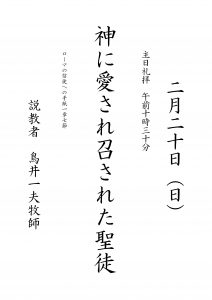 二月二十日（日）
主日礼拝　午前十時三十分
神に愛され召された聖徒
ローマの信徒への手紙一章七節
説教者　鳥井一夫牧師